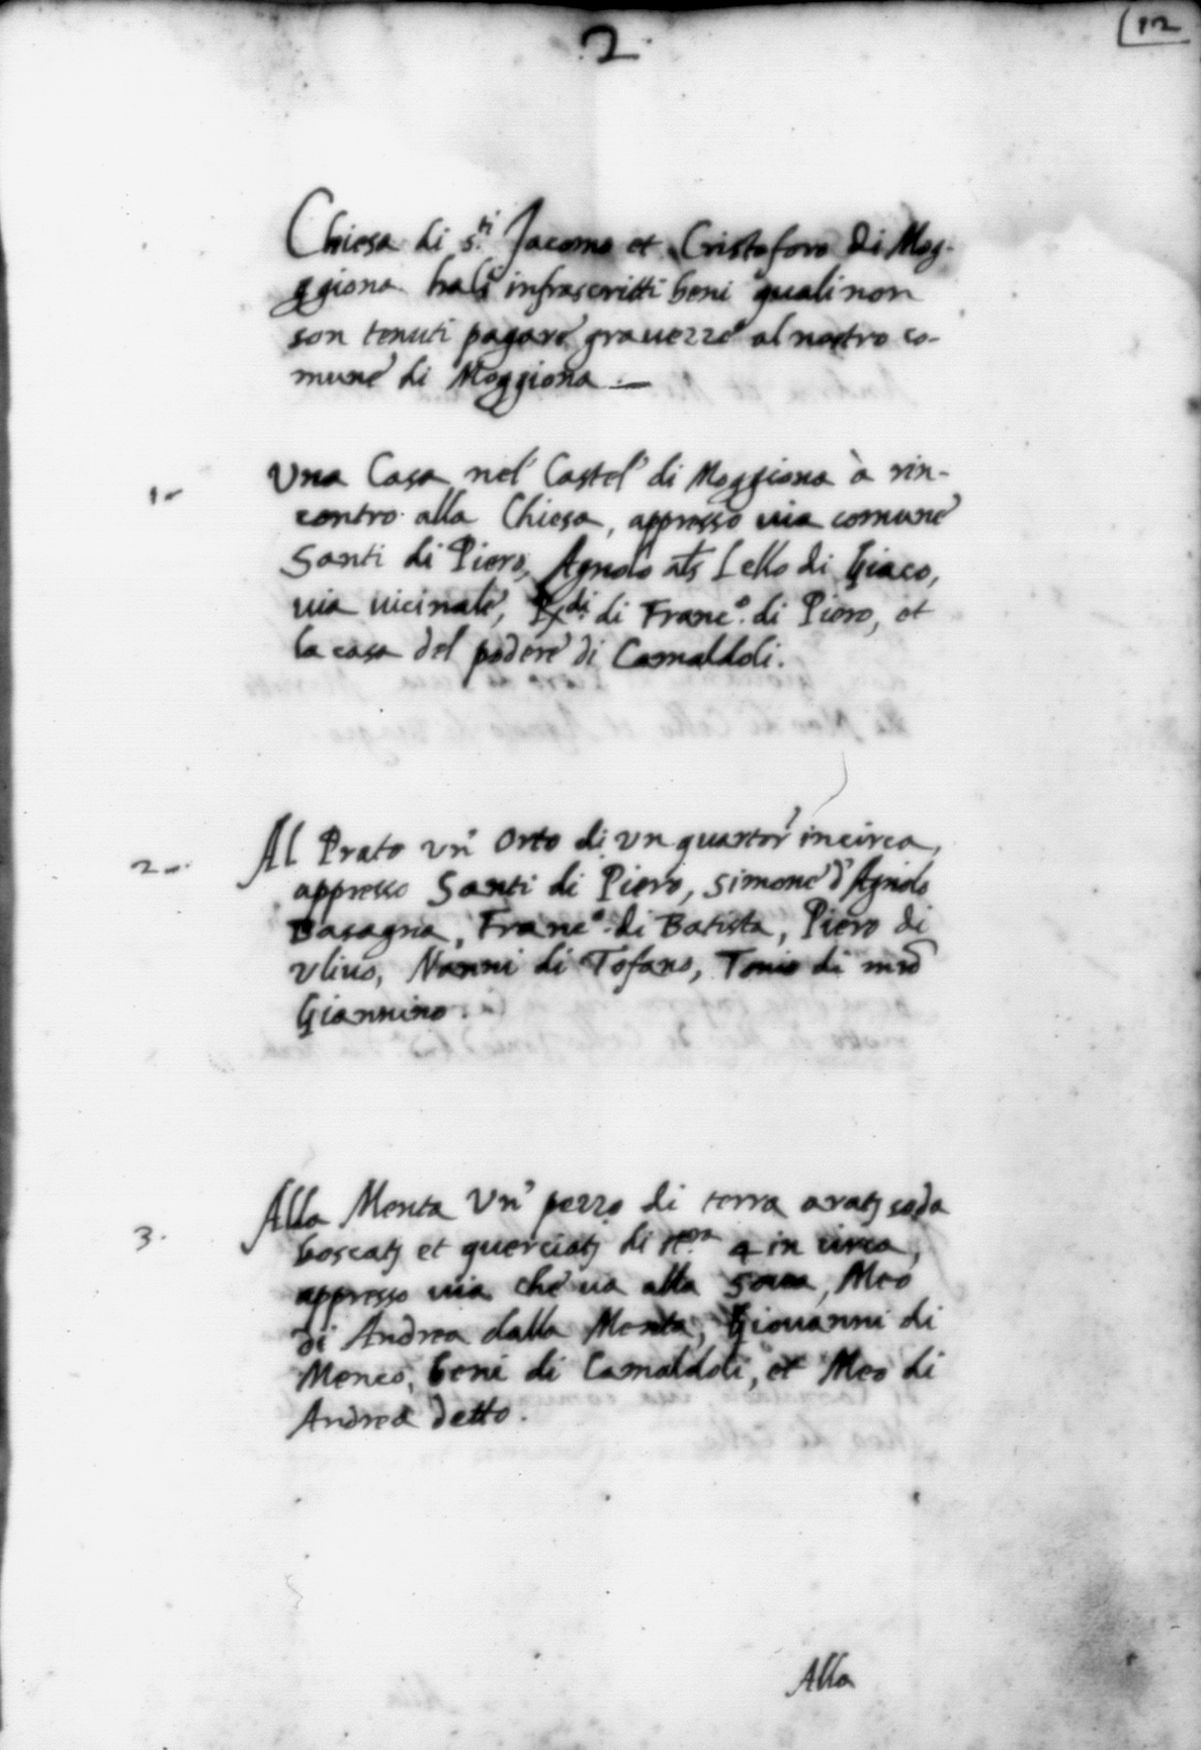 2.
12
Chiesa di s.ti Jacomo et Cristoforo di Mog-
ggiona ha li infrascritti beni quali non
son tenuti pagare gravezze al nostro co-
mune di Moggiona. —
1.
Una Casa nel Castel di Moggiona à rin-
contro alla Chiesa, appresso via comune
Santi di Piero, Agnolo als Lello di Giaco,
via vicinale, di Franc.o di Piero, et
la casa del podere di Camaldoli.
2.
Al Prato un' orto di un quartor' incirca,
appresso Santi di Piero, Simone d' Agnolo
Basagna, Franc.o di Batista, Piero di
Ulivo, Nanni di Tofano, Tonio di mro
Giannino.
3.
Alla Menta un' pezzo di terra arat; soda
boscat; et querciat; di 4 in circa,
appresso via che va alla Sova, Meo
di Andrea dalla Menta, Giovanni di
Menco, beni di Camaldoli, et Meo di
Andrea detto.
Alla